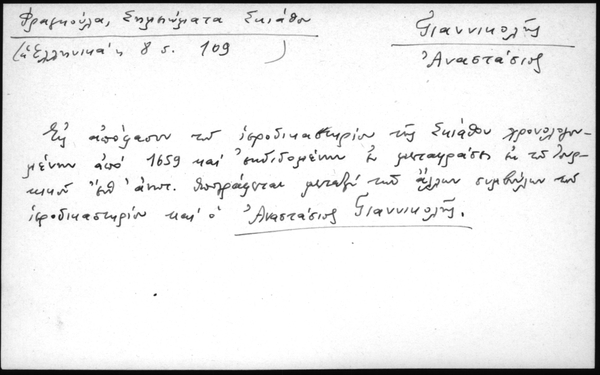 Φραγκούλα, Σημειώματα Σκιάθου
("Ἑλληνικά" 8 σ. 109)
Γιαννικολῆς
Ἀναστάσιος
Εἰς ἀπόφασιν τοῦ ἱεροδικαστηρίου τῆς Σκιάθου χρονολογου-
μένην ἀπό 1659 καί ἐκδιδομένην ἐν μεταφράσει ἐκ τοῦ Τουρ-
κικοῦ ὑπογράφεται μεταξύ τῶν ἄλλων συμβούλων τοῦ
ἱεροδικαστηρίου καί ὁ Ἀναστάσιος Γιαννικολῆς.